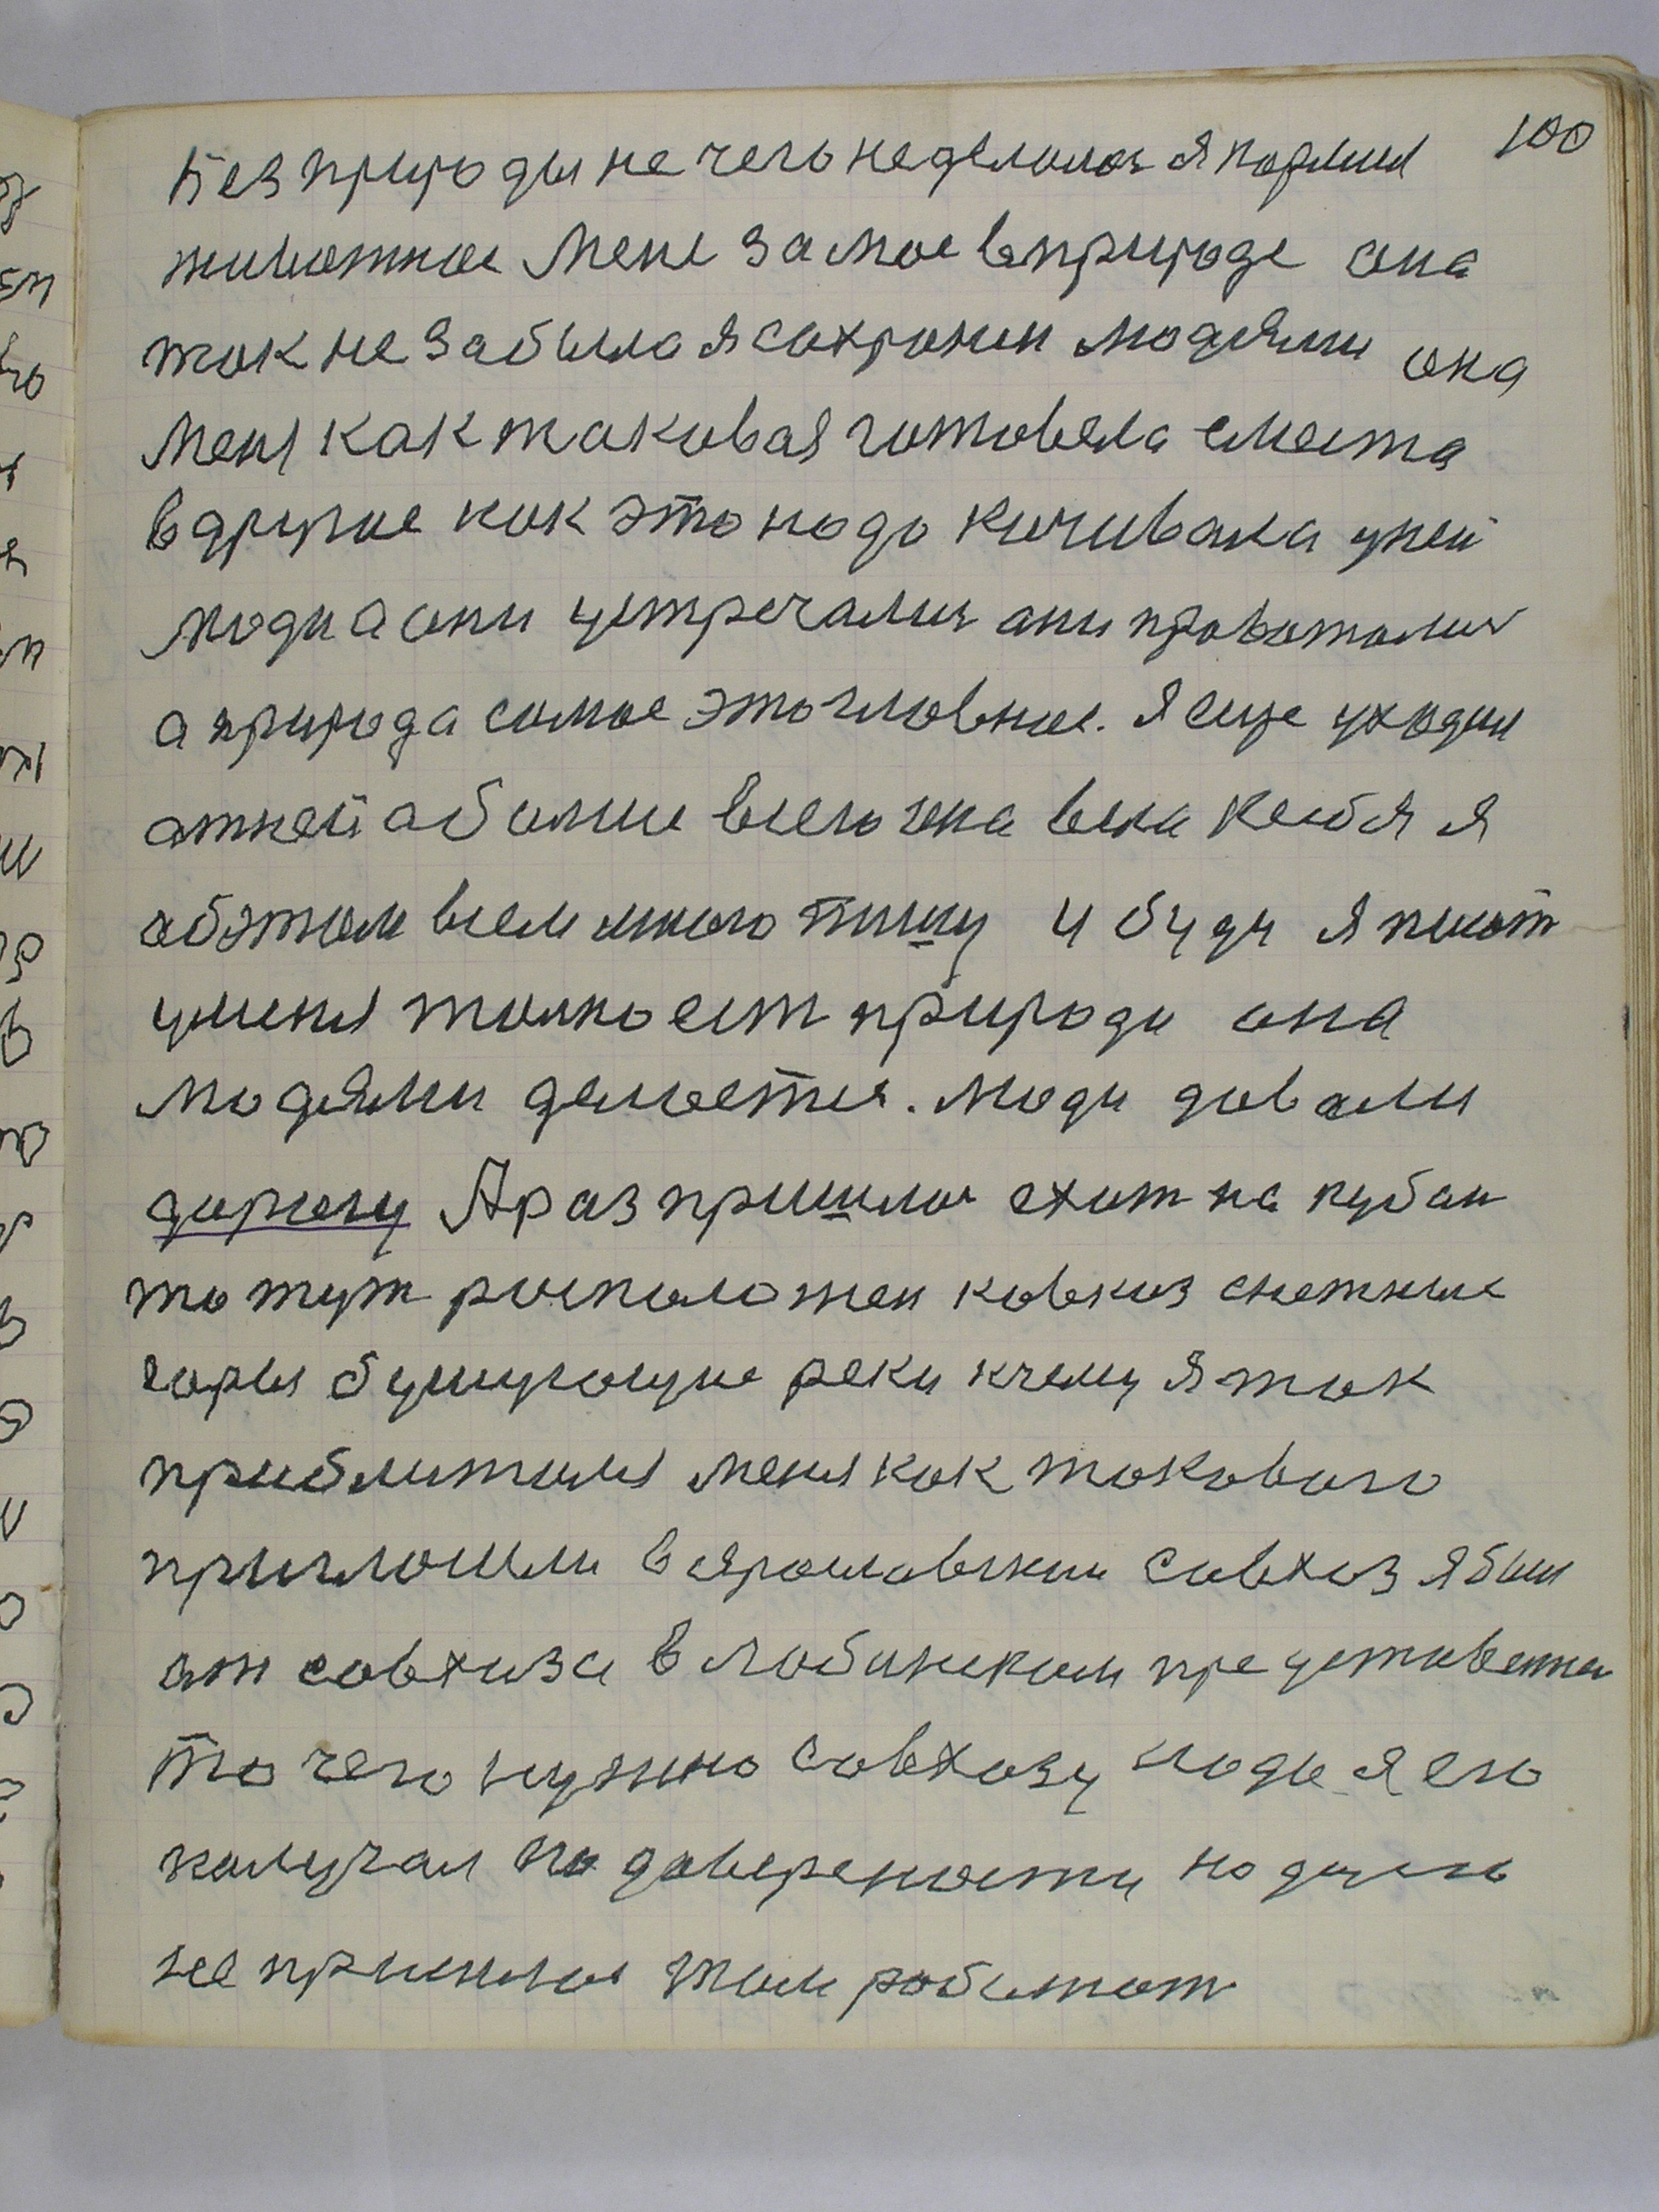 100
Без природы не чего неделалос я кормил
животное Мене за мое вприроде она
так не забыла я сохронен людями она
Меня как таковая готовела сместа
вдругое как это надо кичивака уней
люди а они устречалис ани провожалис
а природа самое это гловное. Я еще уходил
отней а болше всего она вела ксебя я
обэтом всем много пишу и буду я писат
уменя толко ест природа она
людями делается. люди довали
дорогу А раз пришлос ехат на кубан
то тут росположен ковказ снежные
горы бушующие реки кчему я так
приближался меня как такового
приглосили в ярославский совхоз я был
от совхоза в лабинском предстоветел
то чего нужно совхозу люде я его
получал по доверености но долго
не пришлос там работат